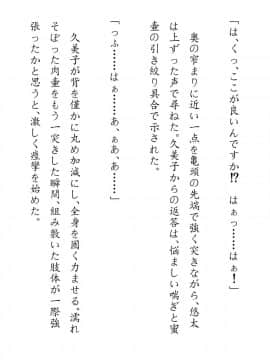 「は、くっ、ここが良いんですか⁉　はぁっ……はぁ！」
　奥の窄まりに近い一点を亀頭の先端で強く突きながら、悠太
は上ずった声で尋ねた。久美子からの返答は、悩ましい喘ぎと蜜
壺の引き絞り具合で示された。
「っふ………はぁ………あ、ぁあ、あ………」
　久美子が背を僅かに丸め加減にし、全身を固く力ませる。濡れ
そぼった肉壺をもう一突きした瞬間、組み敷いた肢体が一際強
張ったかと思うと、激しく痙攣を始めた。